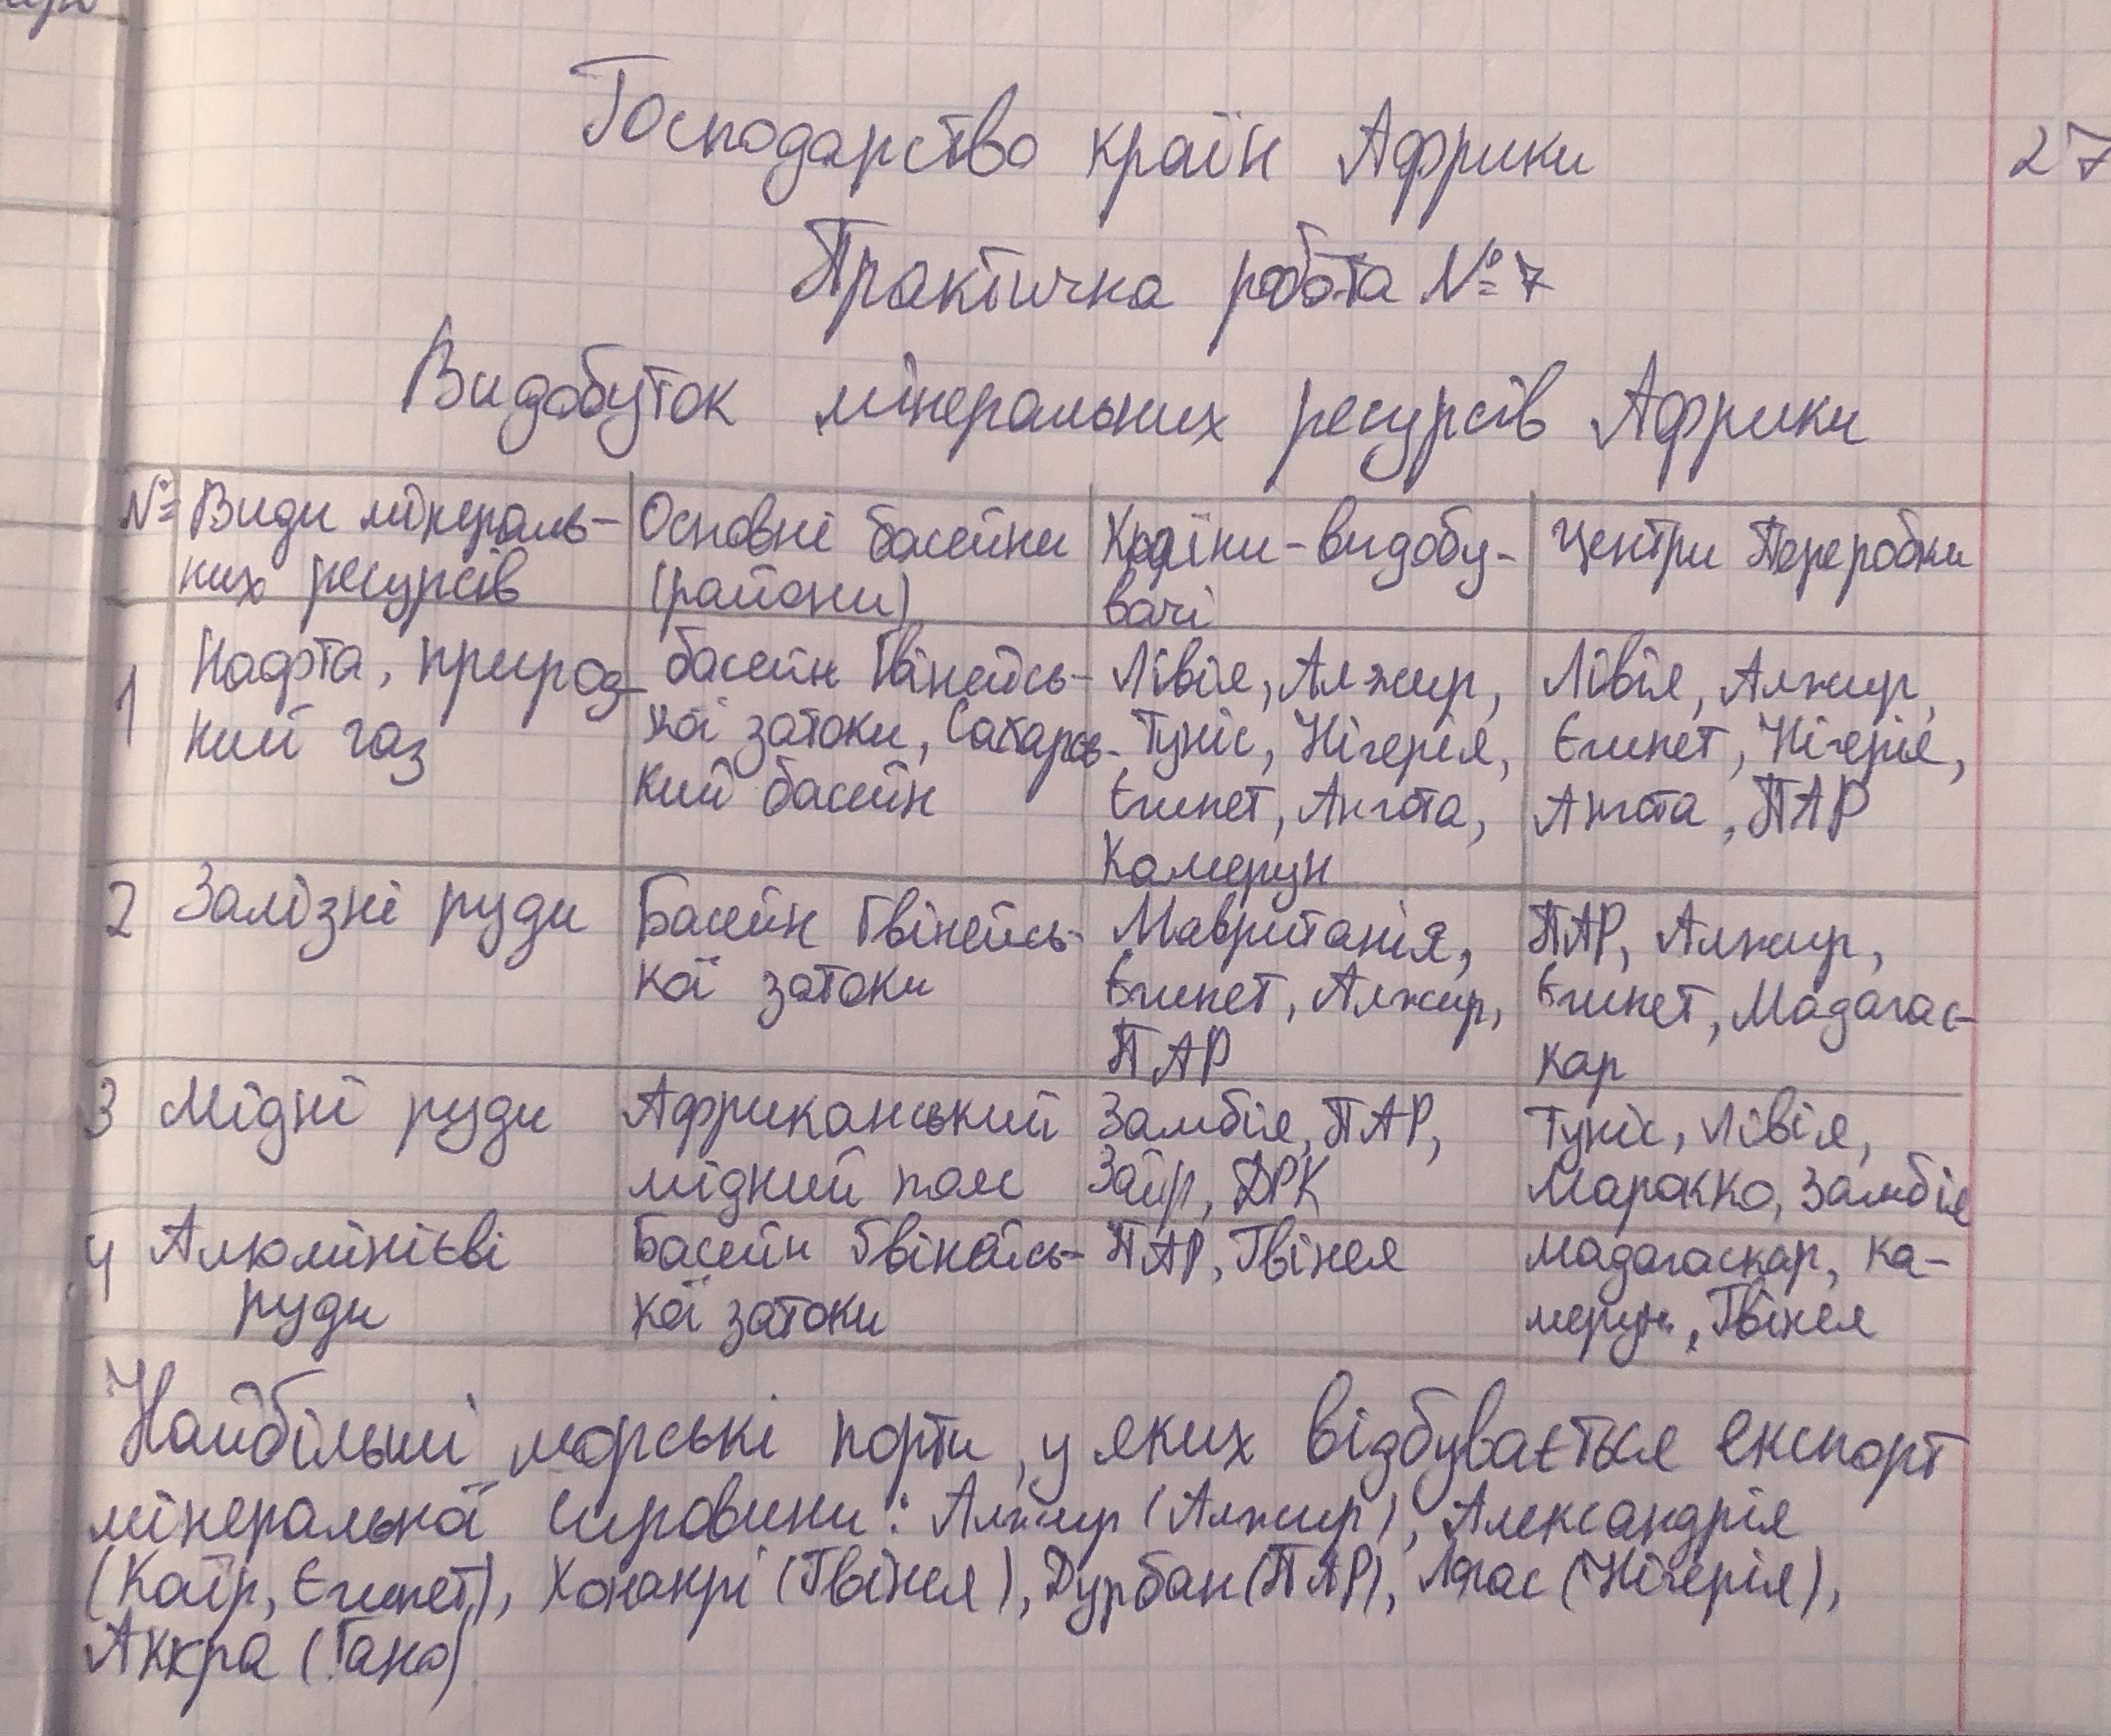 Господарство країн Африки
27
Практична робота №7
Видобуток мінеральних ресурсів Африки
№ Види мінераль-
них ресурсів
Основні басейни
(райони)
Країни-видобу-
вачі
Центри Переробки
1
Нафта, природ-
ний газ
басейн Гвінейсь-
кої затоки, Сахарсь-
кий басейн
Лівія, Алжир,
Туніс, Нігерія,
Єгипет, Ангола,
Камерун
Лівія, Алжир,
Єгипет, Нігерія,
Ангола, ПАР
2 Залізні руди
Басейн Гвінейсь-
кої затоки
Мавританія,
Єгипет, Алжир,
ПАР
ПАР, Алжир,
Єгипет, Мадагас-
кар
3 Мідні руди
Африканський
мідний пояс
Замбія, ПАР,
Заїр, ДРК
Туніс, Лівія,
Марокко, Замбія
4 Алюмінієві
руди
Басейн Гвінейсь-
кої затоки
ПАР, Гвінея
Мадагаскар, Ка-
мерун, Гвінея
Найбільші морські порти, у яких відбувається експорт
мінеральної сировини: Алжир (Алжир), Александрія
(Каїр, Єгипет), Конакрі (Гвінея), Дурбан (ПАР), Лагос (Нігерія),
Аккра (Гана)